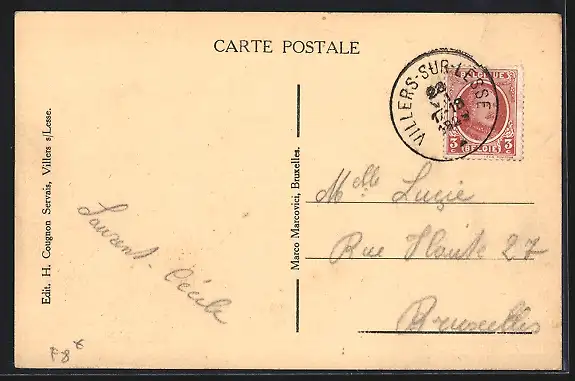 CARTE POSTALE
Edit. H. Cougnon Servais, Villers s/Lesse.
Marco Marcovici, Bruxelles.
VILLERS-SUR-LESSE
28
17-18
BELGIQUE
3 BELGIE 3
Laurent - Cécile
Melle Lucie
Rue Haute 27
Bruxelles